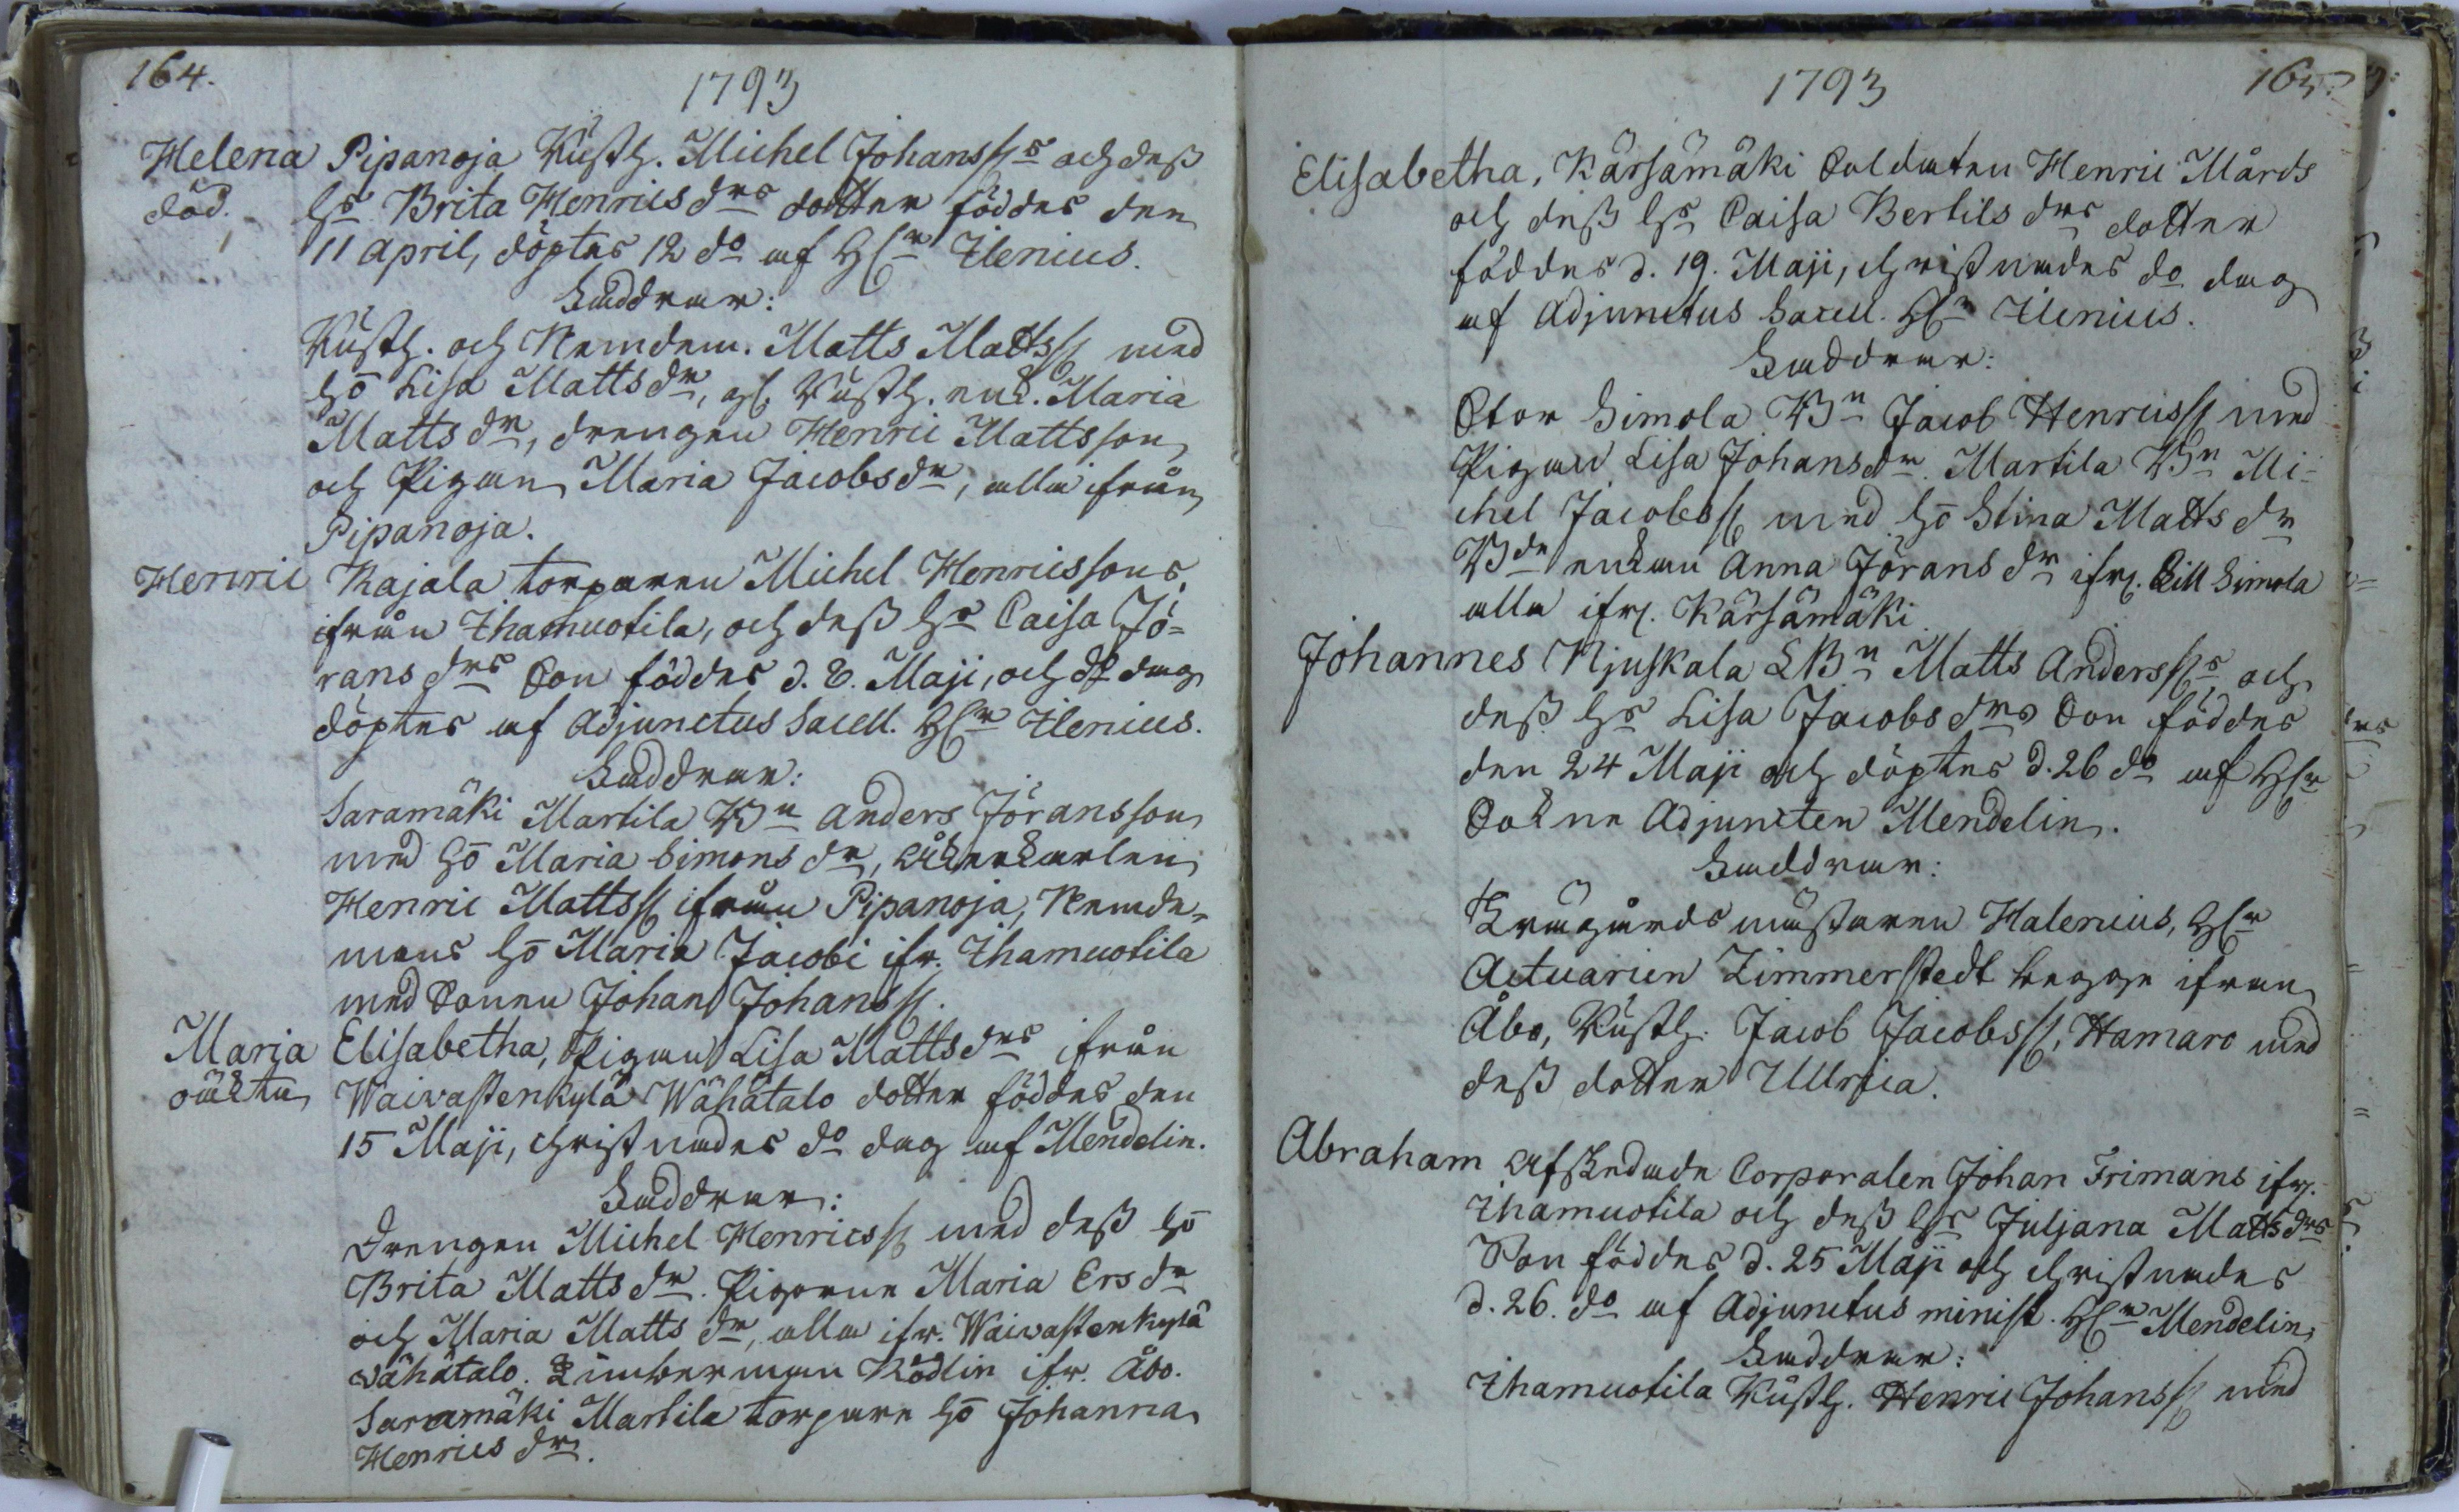 164.
1793
Helena Pipanoja Rusth. Michel Johanss:s och dess
död. hs Brita Henrics drs dotter föddes den
11 April, döptes 12 do af H:r Ilenius.
Faddrar:
Rusth. och Nemdem. Matts Mattss: med
ho Lisa Matts dr, gl. Rusth. enk. Maria
Matts dr, drengen Henric Mattsson
och Pigan Maria Jacobs dr, alla ifrån
Pipanoja.
Henric Kajala torparen Michel Henricssons,
ifrån Ihamuotila, och dess hs Caisa Jö=
rans drs Son föddes d. 8. Maji, och do dag
döptes af Adjunctus Sacell. H:r Ilenius.
Faddrar:
Saramäki Martila Bn Anders Jöransson
med ho Maria Simons dr, åkerkarlen
Henric Mattss: ifrån Pipanoja, Nemde=
mans ho Maria Jacobi ifr. Ihamuotila
med Sonen Johan Johanss:.
Maria Elisabetha, Pigan Lisa Matts drs ifrån
oäkta Waiwastenkylä Wähätalo dotter föddes den
15 Maji, christnades do dag af Mendelin.
Faddrar:
Drengen Michel Henricss: med dess ho
Brita Matts dr. Pigorne Maria Ers dr
och Maria Matts dr, alla ifr. Waiwastenkylä
wähätalo. Timberman Rödlin ifr. Åbo.
Saramäki Martila torpare ho Johanna
Henrics dr.
1793
165.
Elisabetha, Kärsämäki Soldaten Henric Mårds
och dess hs Caisa Bertils drs dotter
föddes d. 19. Maji, christnades do dag
af Adjunctus Sacell. H:r Ilenius.
Faddrar:
Stor Simola Bn Jacob Henricss: med
Pigan Lisa Johans dr. Martila Bn Mi=
chel Jacobss: med ho Stina Matts dr
Bde enkan Anna Jörans dr ifr. Lill Simola
alla ifr. Kärsämäki.
Johannes Njuskala LBn Matts Anderss:s och
dess hs Lisa Jacobs drs Son föddes
den 24 Maji och döptes d. 26 do af H:r
Sokne Adjuncten Mendelin.
Faddrar:
Krägårds mästaren Halenius, H:r
Actuarien Zimmerstedt begge ifrån
Åbo, Rusth. Jacob Jacobss:, Hamaro med
dess dotter Ullrica.
Abraham Afskedade Corporalen Johan Frimans ifr.
Ihamuotila och dess hs Juljana Matts drs
Son föddes d. 25 Maji och christnades
d. 26. do af Adjunctus minist. H:r Mendelin.
Faddrar:
Ihamuotila Rusth. Henric Johanss: med